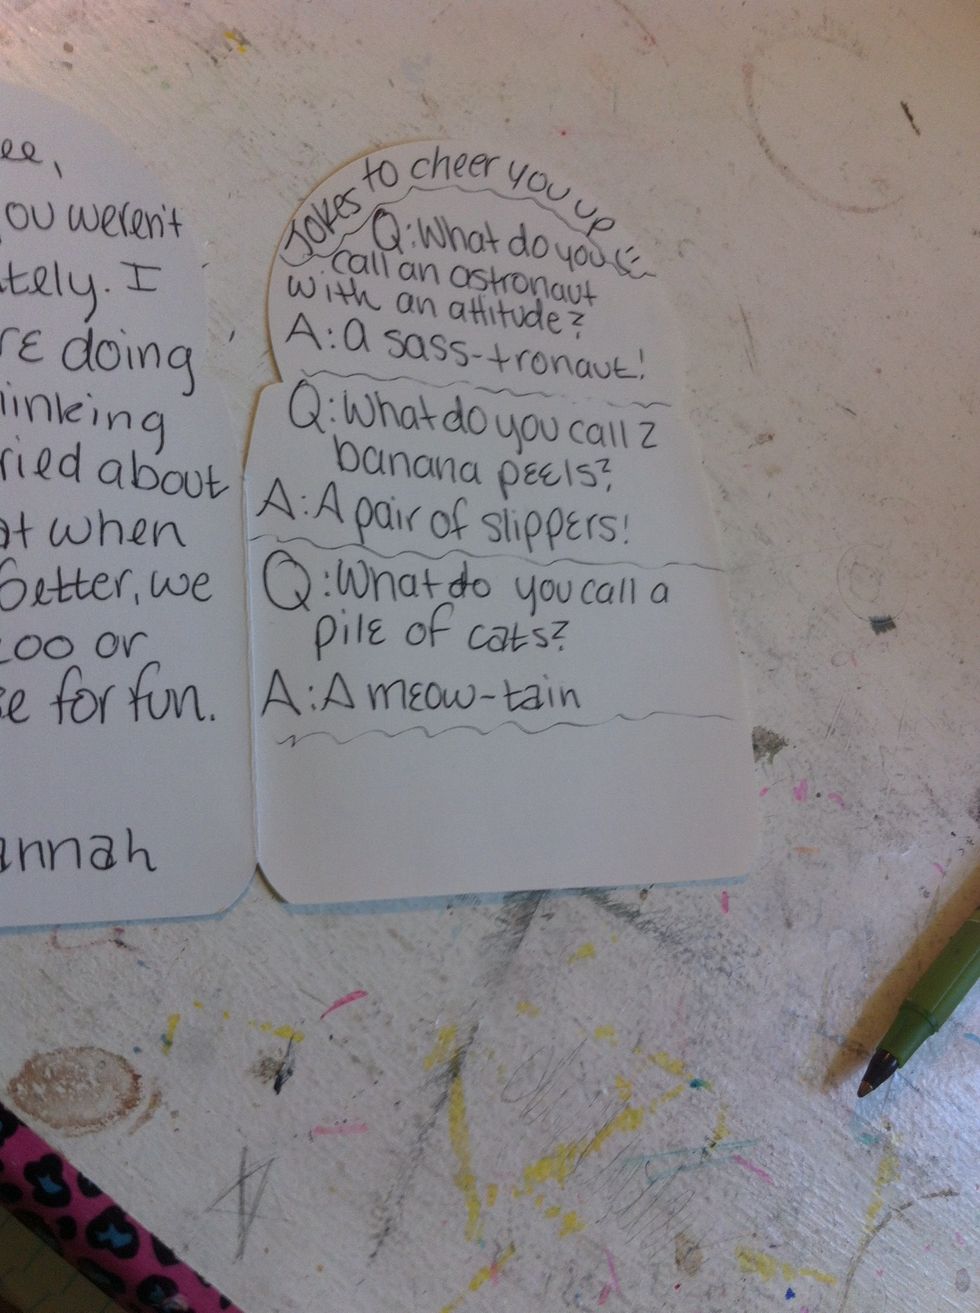 ee,
ou weren't
tely. I
re doing
inking
ried about
at when
better, we
zoo or
e for fun.
annah
Jokes to cheer you up
Q: What do you
call an astronaut
with an attitude?
A: a sass-tronaut!
Q: What do you call 2
banana peels?
A: A pair of slippers!
Q: What do you call a
pile of cats?
A: A meow-tain